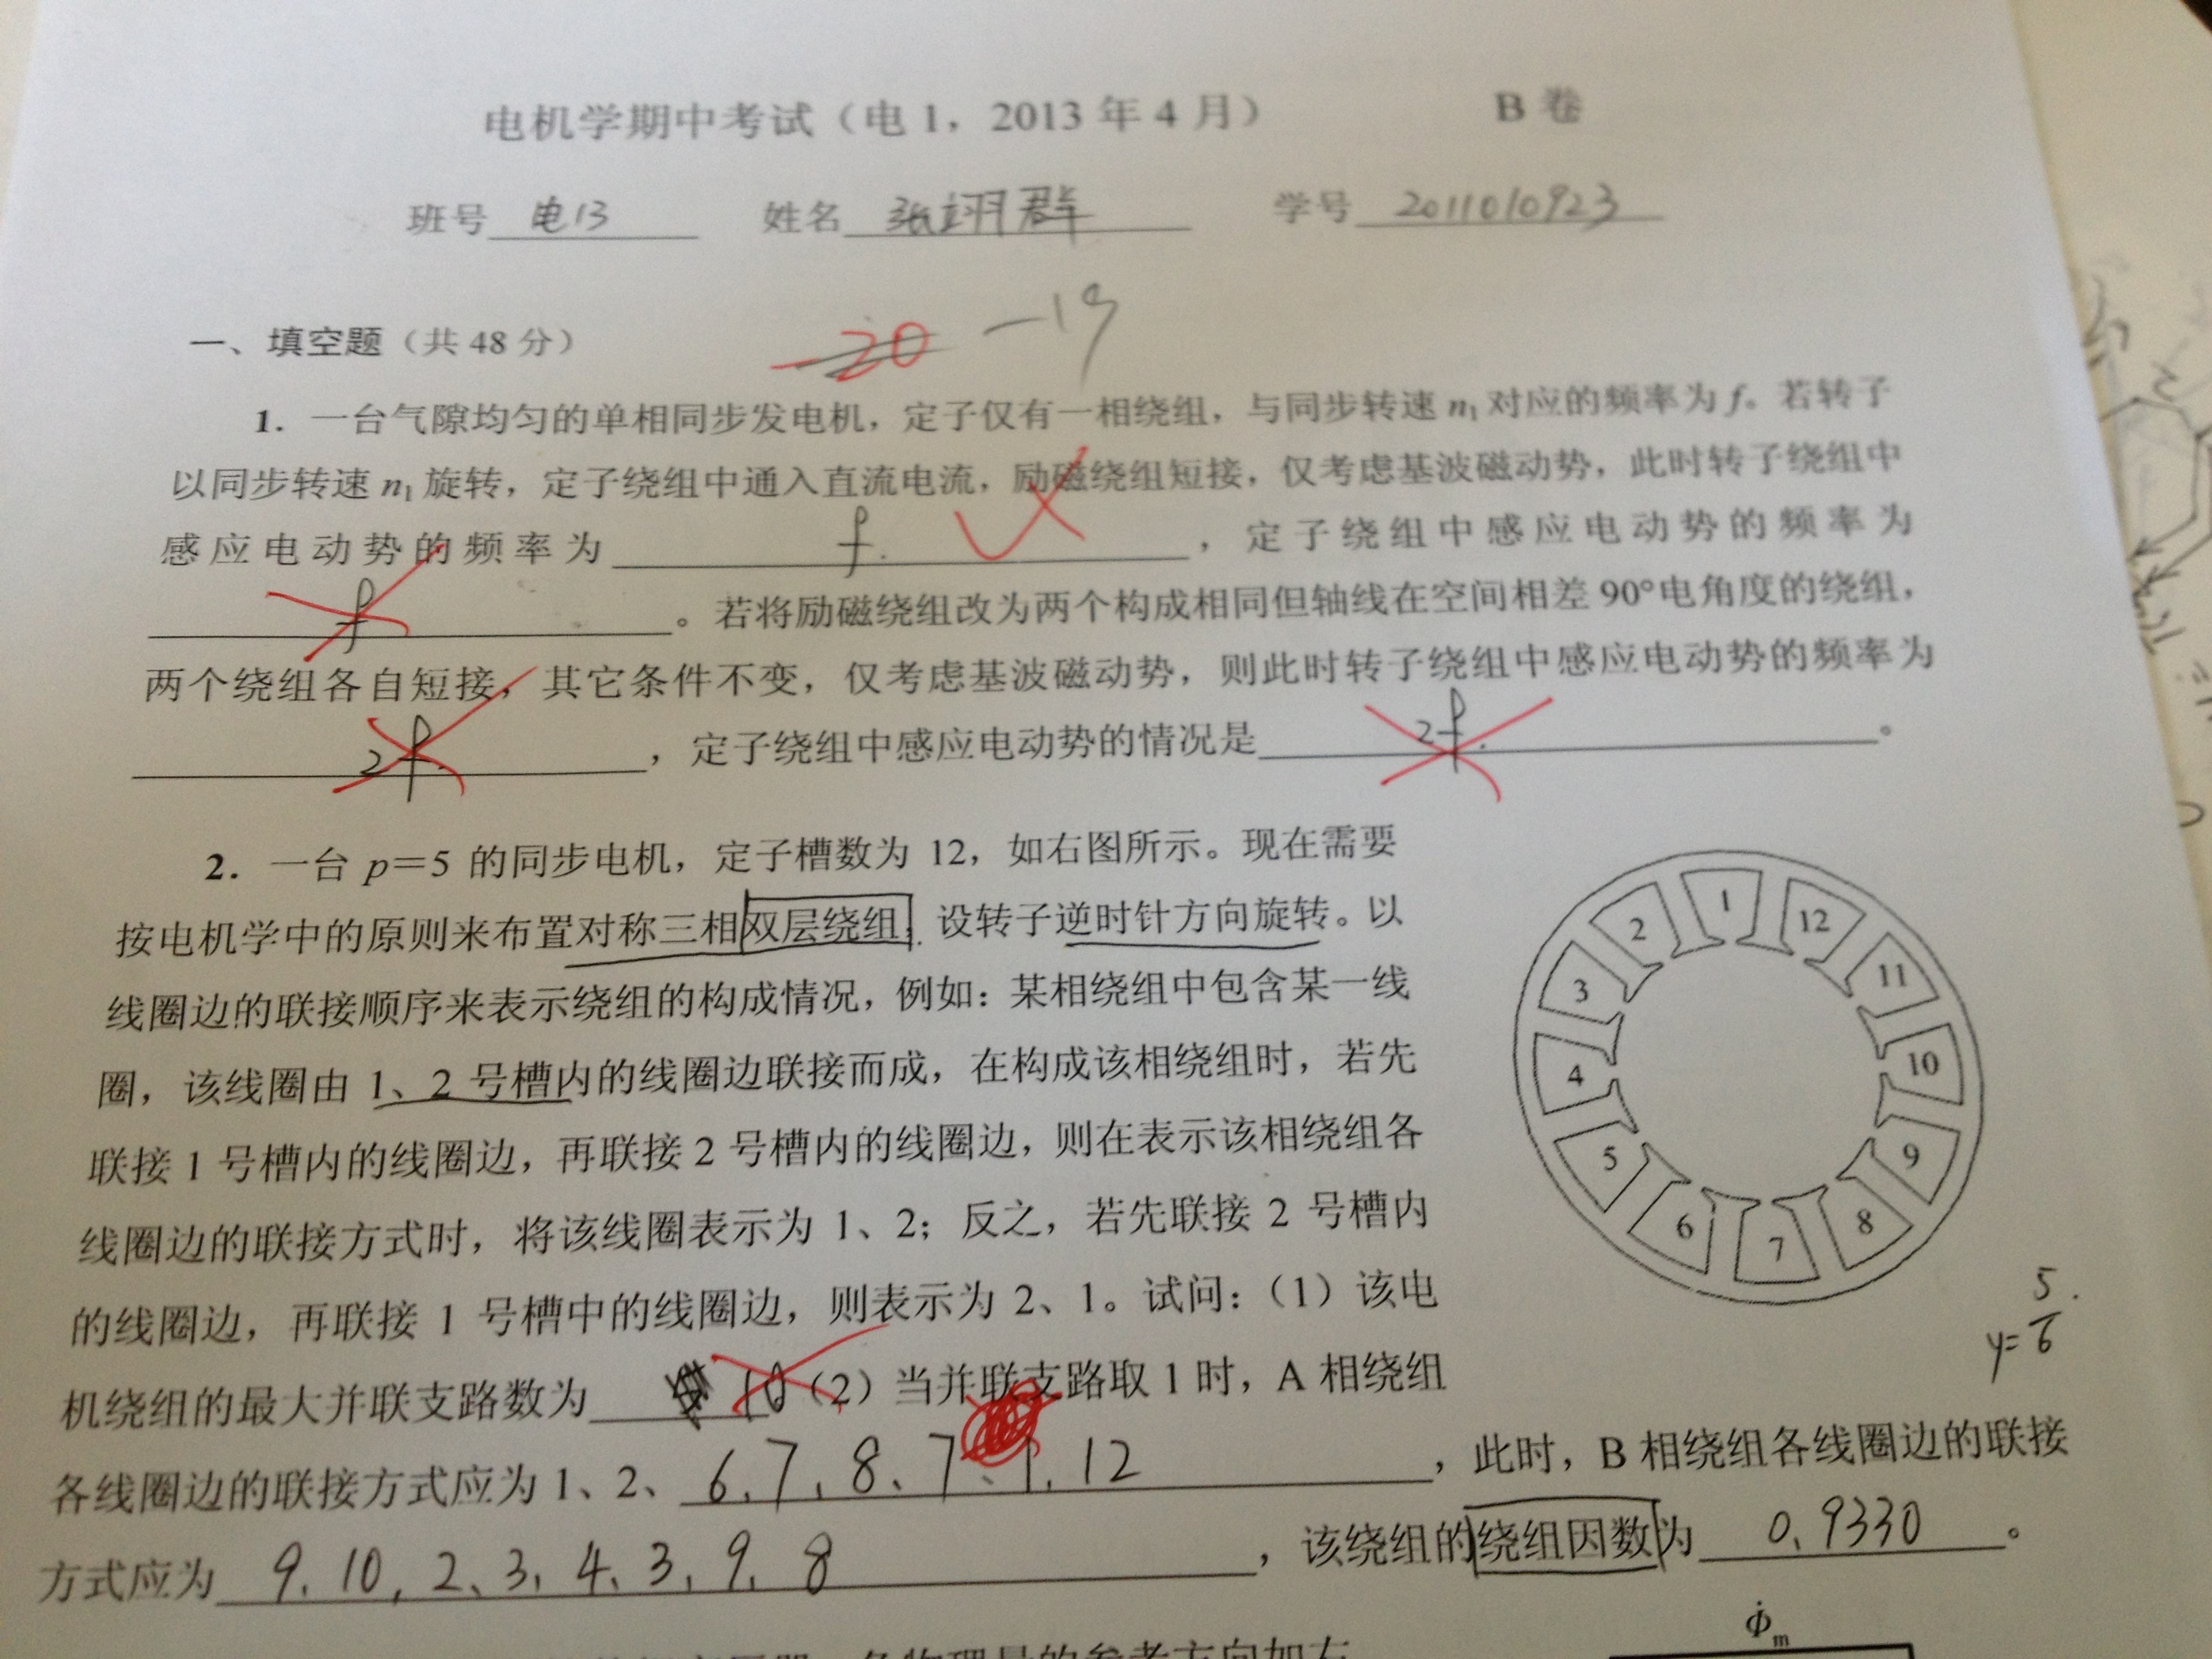 电机学期中考试（电1，2013年4月） B卷
班号 电13 姓名 张翊群 学号 2011010923
一、填空题（共48分） -20 -19
1．一台气隙均匀的单相同步发电机，定子仅有一相绕组，与同步转速 n₁ 对应的频率为 f。若转子
以同步转速 n₁ 旋转，定子绕组中通入直流电流，励磁绕组短接，仅考虑基波磁动势，此时转子绕组中
感应电动势的频率为 f. ，定子绕组中感应电动势的频率为
f 。若将励磁绕组改为两个构成相同但轴线在空间相差90°电角度的绕组，
两个绕组各自短接，其它条件不变，仅考虑基波磁动势，则此时转子绕组中感应电动势的频率为
2f. ，定子绕组中感应电动势的情况是 2f. 。
2．一台 p＝5 的同步电机，定子槽数为 12，如右图所示。现在需要
按电机学中的原则来布置对称三相双层绕组，设转子逆时针方向旋转。以
线圈边的联接顺序来表示绕组的构成情况，例如：某相绕组中包含某一线
圈，该线圈由 1、2 号槽内的线圈边联接而成，在构成该相绕组时，若先
联接 1 号槽内的线圈边，再联接 2 号槽内的线圈边，则在表示该相绕组各
线圈边的联接方式时，将该线圈表示为 1、2；反之，若先联接 2 号槽内
的线圈边，再联接 1 号槽中的线圈边，则表示为 2、1。试问：（1）该电
机绕组的最大并联支路数为 10（2）当并联支路取 1 时，A 相绕组
各线圈边的联接方式应为 1、2、6、7、8、7、1、12 ，此时，B 相绕组各线圈边的联接
方式应为 9、10、2、3、4、3、9、8 ，该绕组的绕组因数为 0.9330 。
1
2
3
4
5
6
7
8
9
10
11
12
y=5/6
Φ̇m